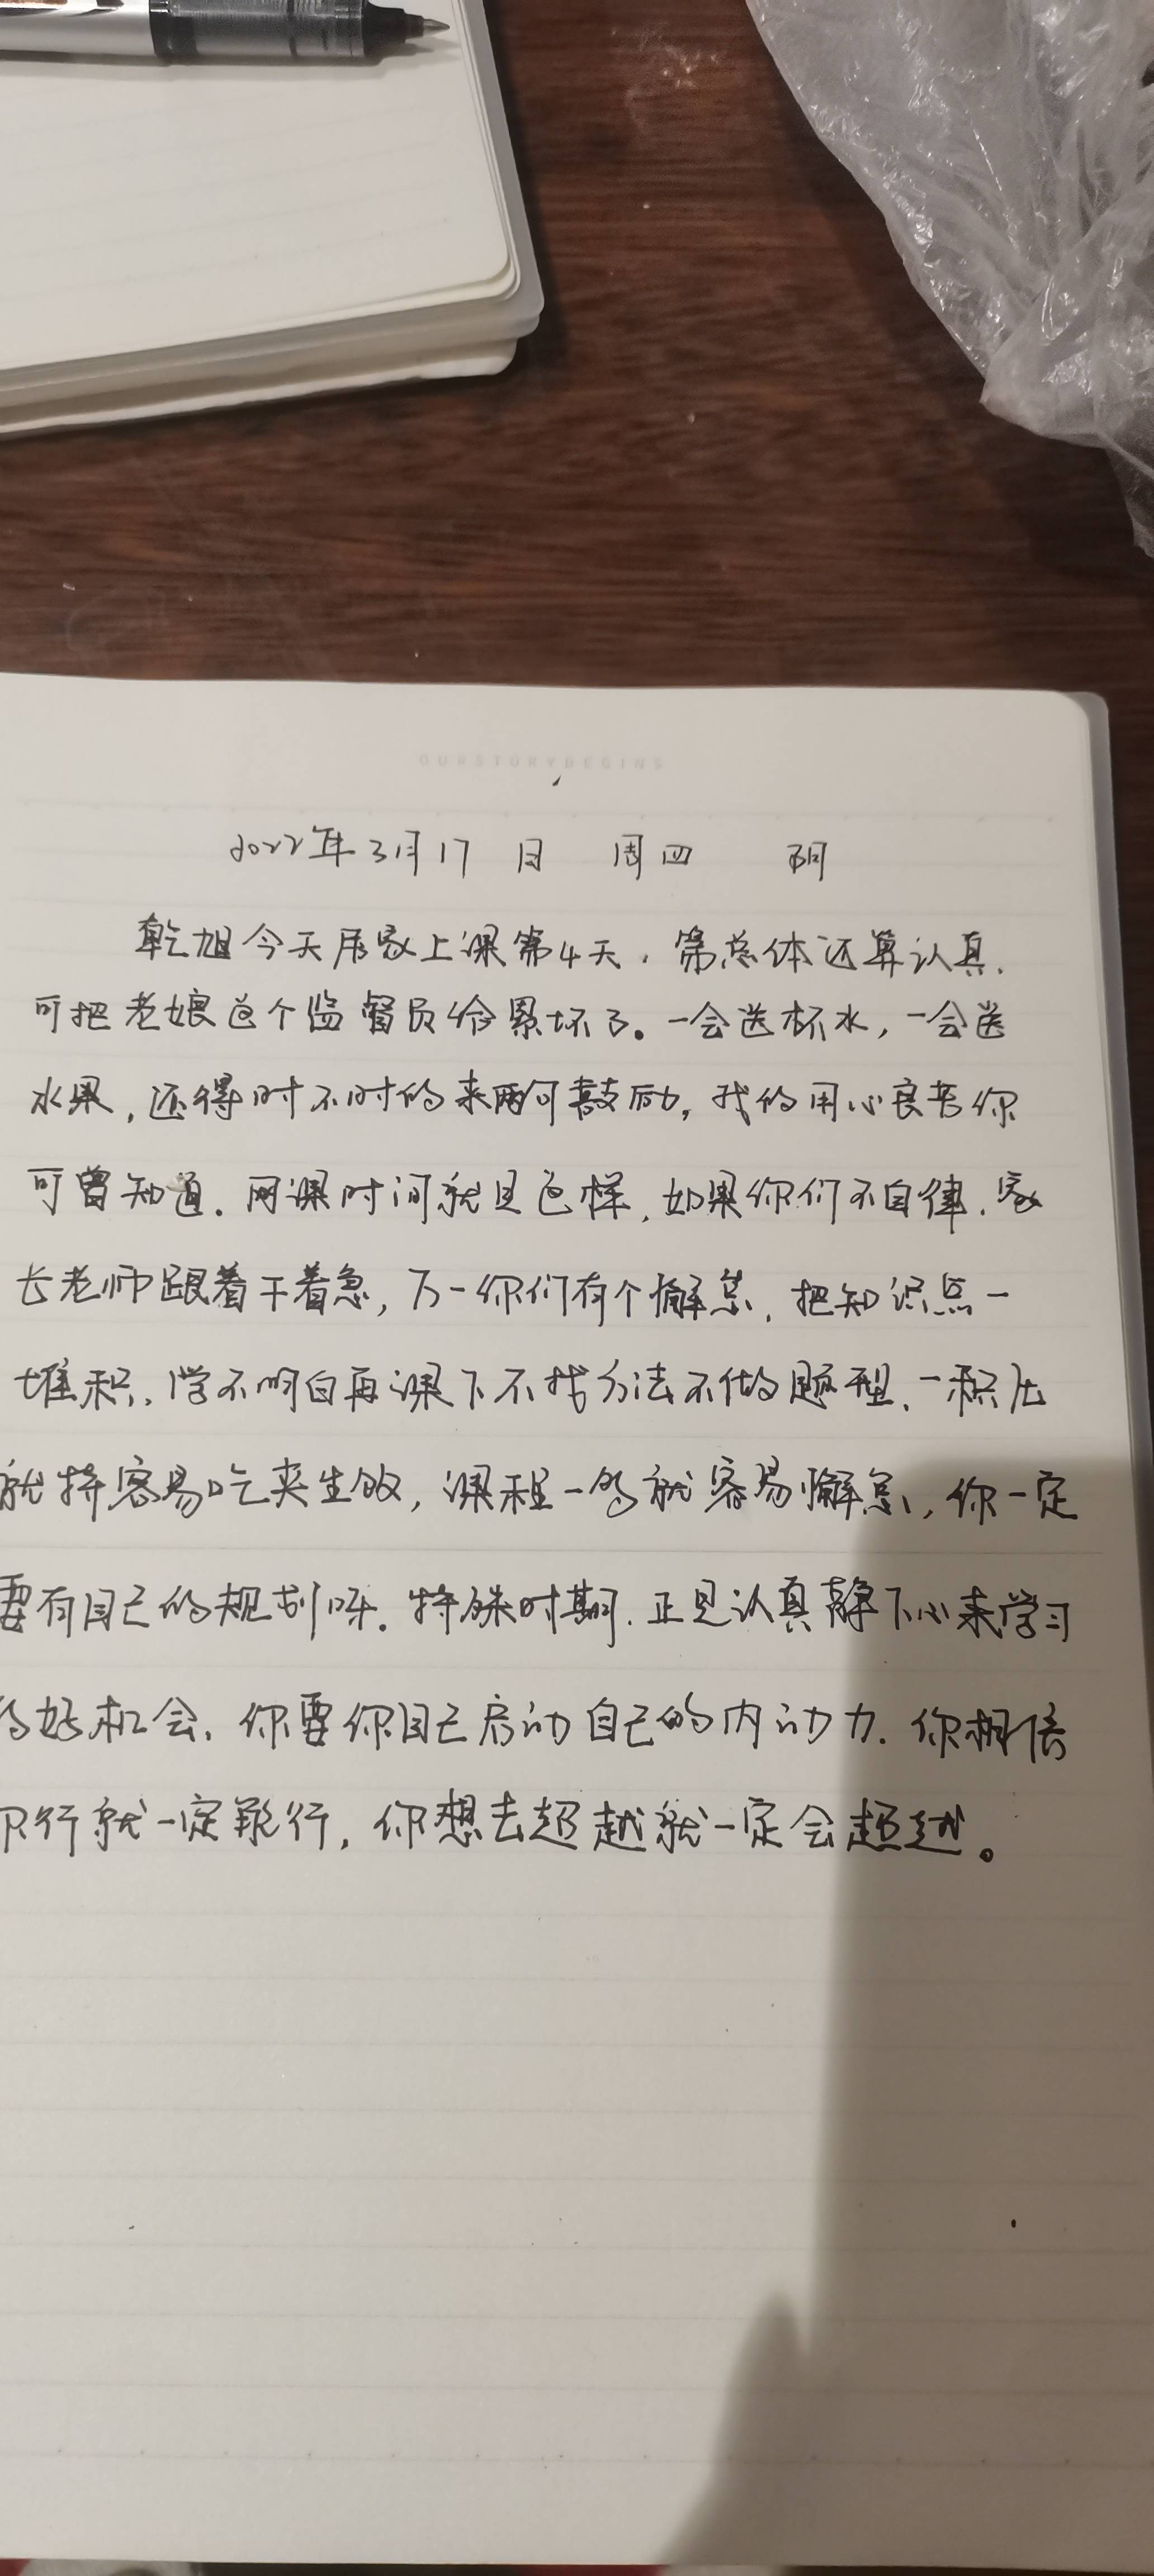 OURSTORYBEGINS
2022年3月17日 周四 阴
乾旭今天居家上课第4天,第总体还算认真.
可把老娘这个监督员给累坏了。一会送杯水,一会送
水果,还得时不时的来两句鼓励,我的用心良苦你
可曾知道.网课时间就是这样,如果你们不自律.家
长老师跟着干着急,万一你们有个懈怠,把知识点一
堆积,学不明白再课下不找方法不做的题型,一积压
就特容易吃夹生饭,课程一多就容易懈怠,你一定
要有自己的规划呀.特殊时期.正是认真静下心来学习
的好机会,你要你自己启动自己的内动力.你相信
行就一定能行,你想去超越就一定会超越。